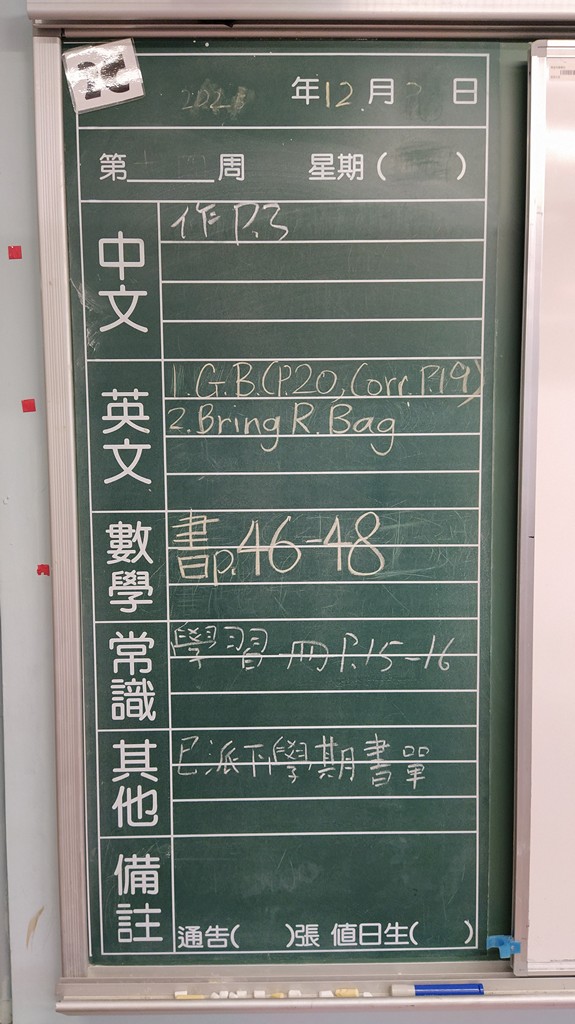 2C
年12月 日
第 周 星期( )
中文
作 P.3
英文
1. G.B.(P.20, Corr. P.19)
2. Bring R. Bag
數學
書p.46-48
常識
學習冊 P.15-16
其他
已派下學期書單
備註
通告( )張 值日生( )